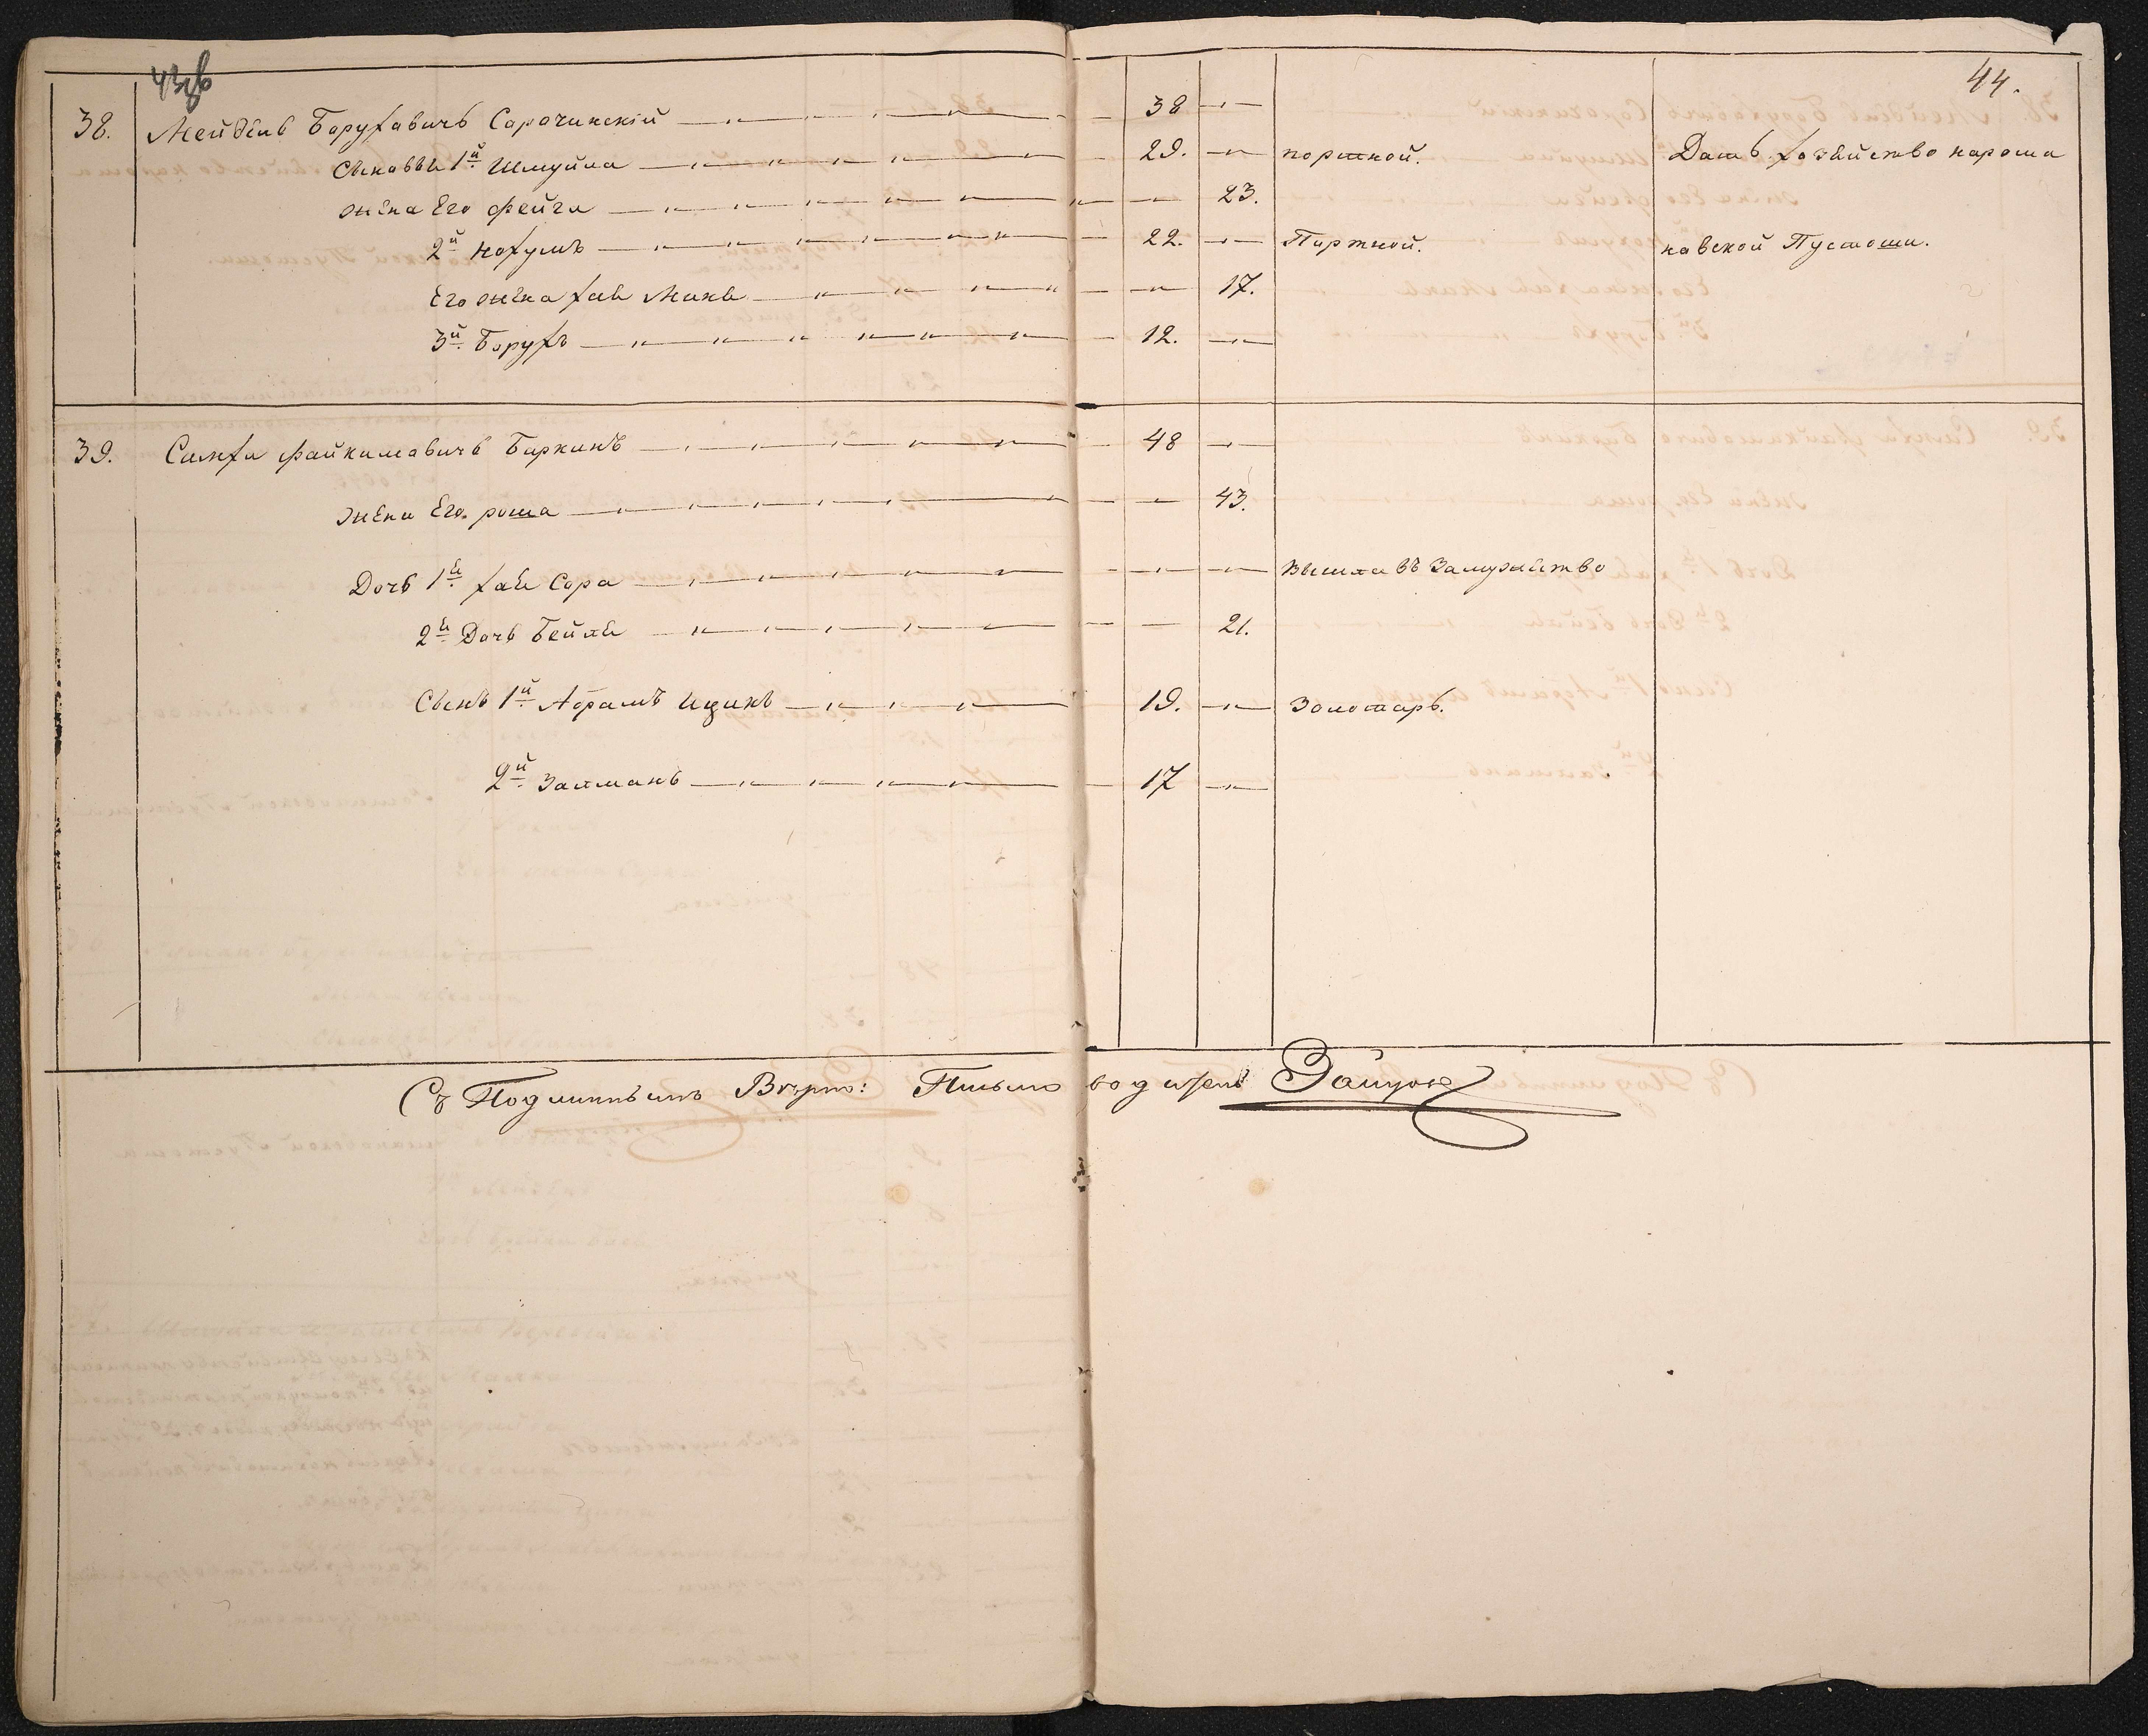 43об
44.
38. Мейдель Боруховичъ Сорочинскій 38
Сыновья 1й Шмуйла 29. портной. Дать. хозяйство народа
жена Его Фейга 23.
2й Нохумъ 22. Портной. новской Пустоши.
Его жена хая Манъ 17.
3й Борухъ 12.
39. Симха Файкимовичъ Боркинъ 48
жена Его. роша 43.
Дочь 1я хая Сора вышла въ Замужество
2я Дочь Бейля 21.
Сынъ 1й Абрамъ Ицикъ 19. Золотарь.
2й Залманъ 17
Съ Подлиннымъ Вѣрно: Письмоводитель